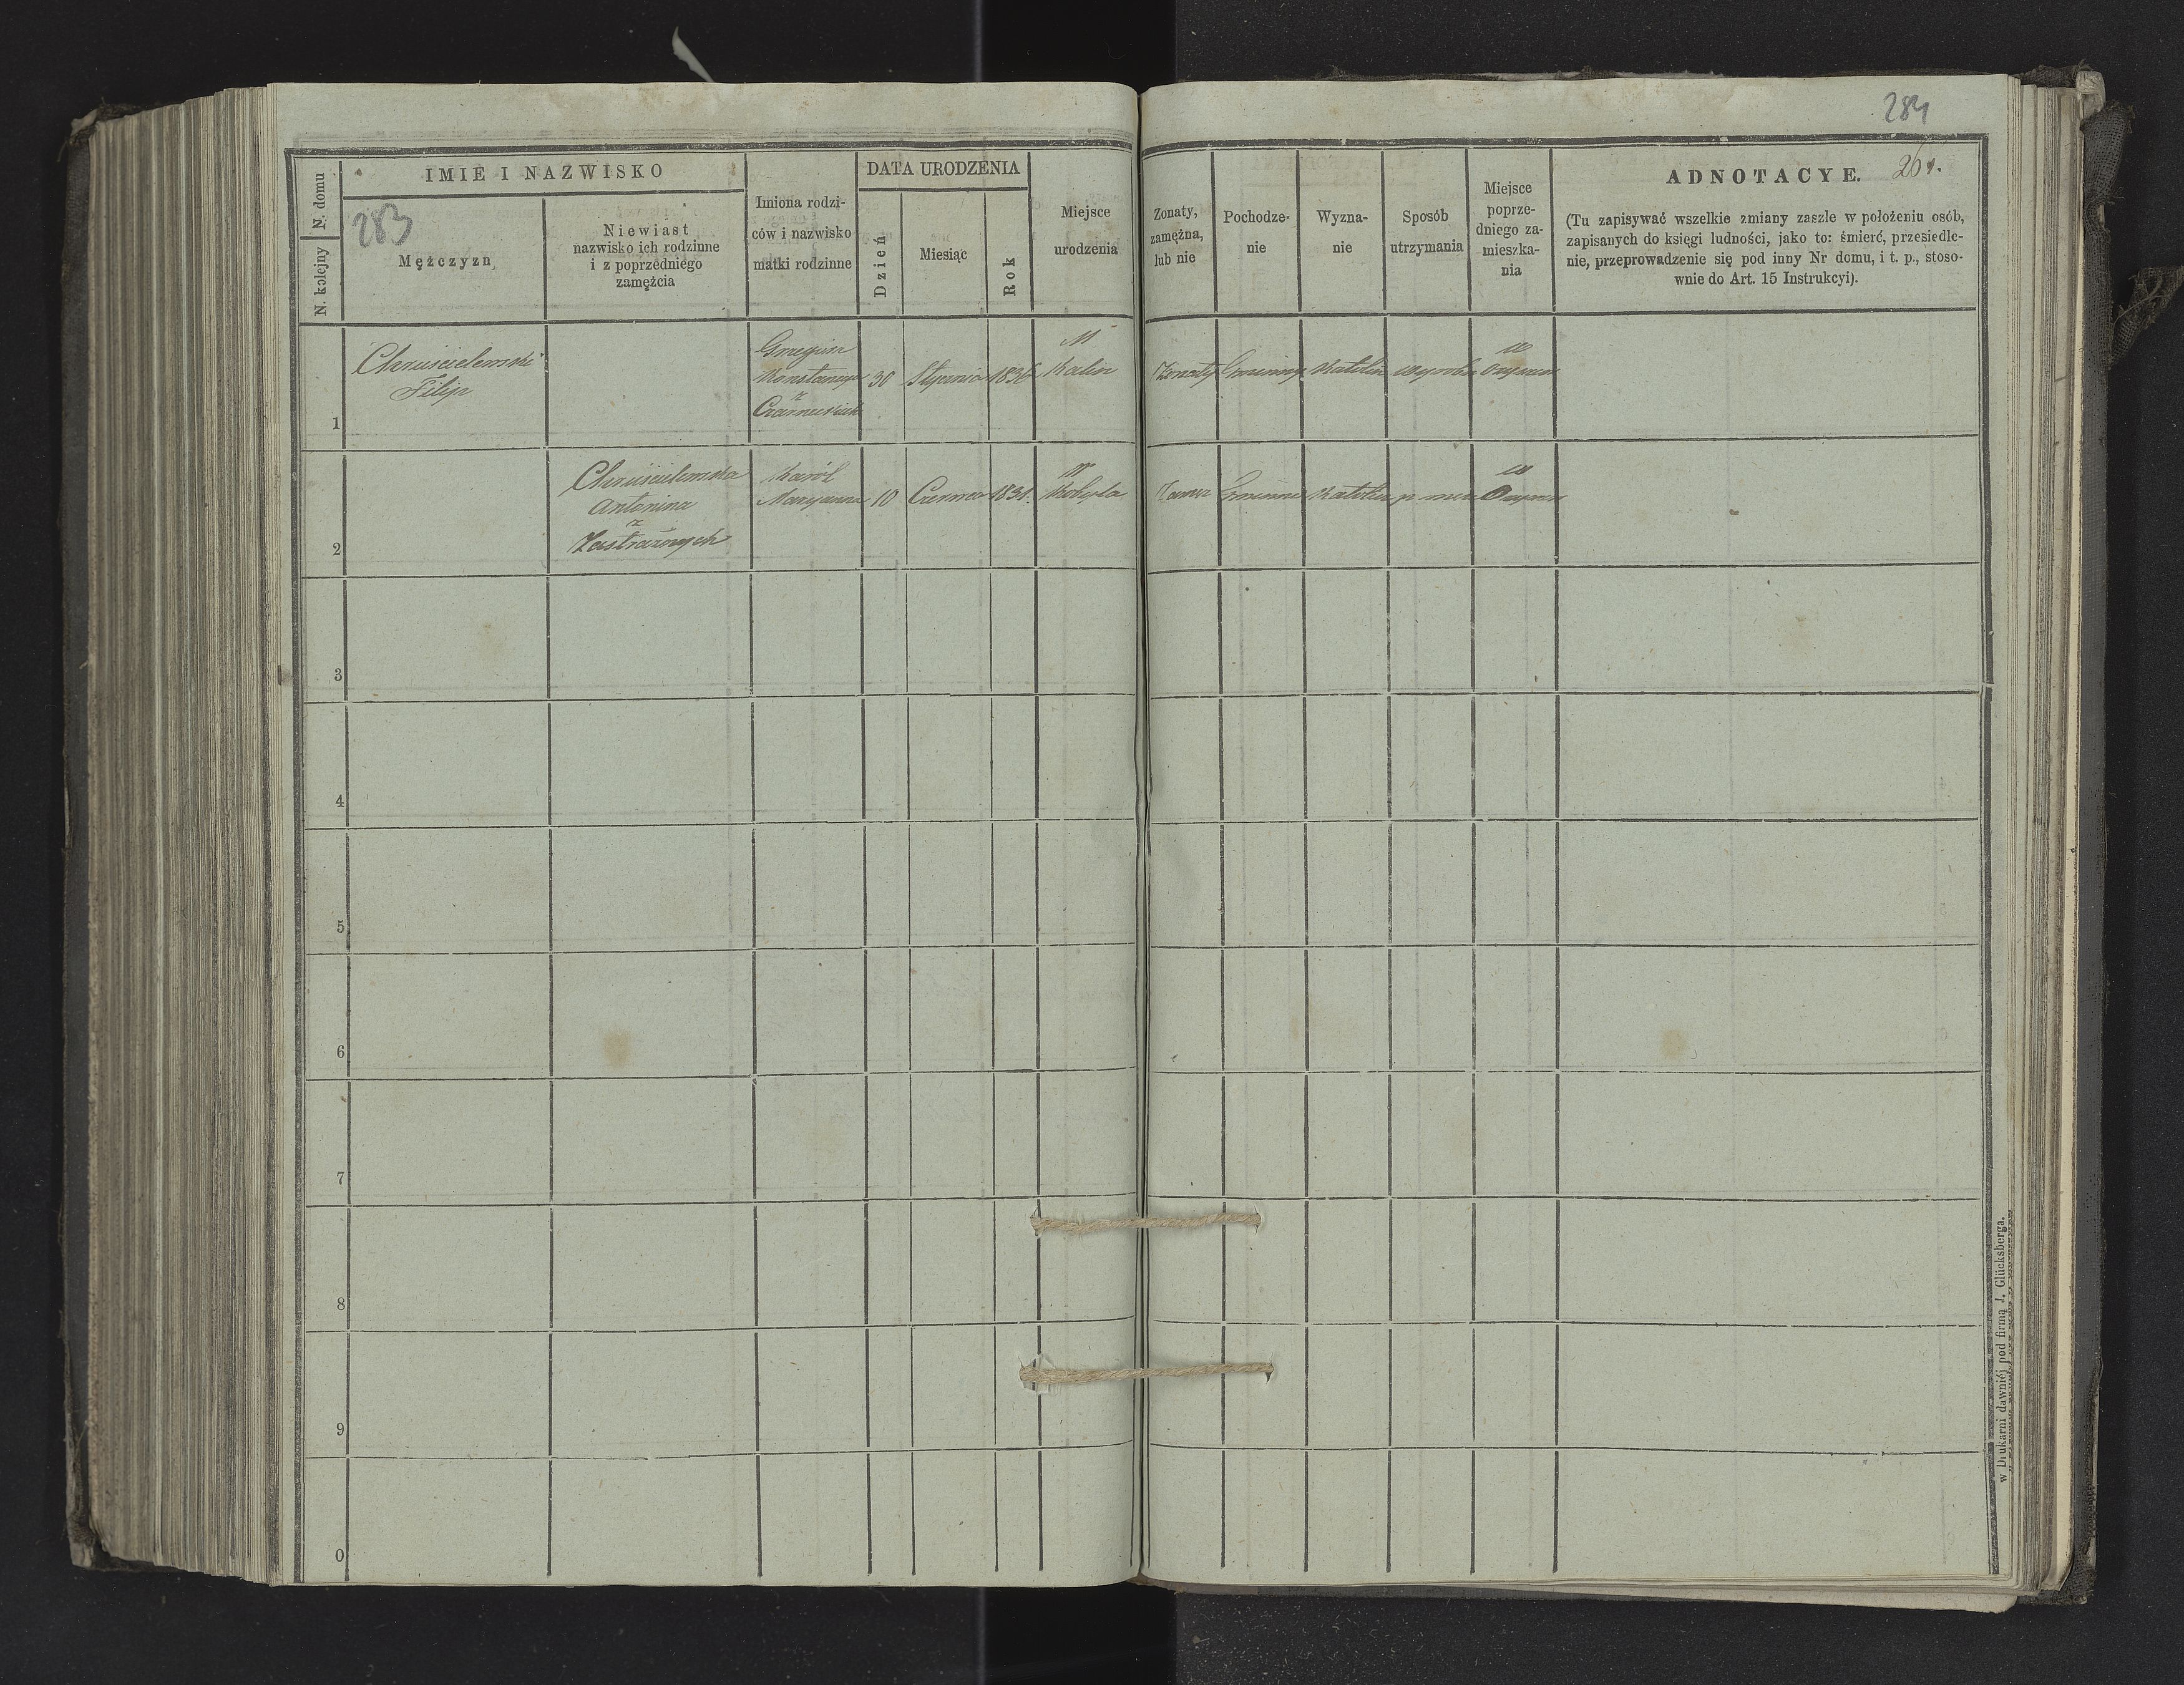 284
261.
283
N. domu
N. kolejny
IMIE I NAZWISKO
Mężczyzn
Niewiast
nazwisko ich rodzinne
i z poprzedniego
zamężcia
Imiona rodzi-
ców i nazwisko
matki rodzinne
DATA URODZENIA
Dzień
Miesiąc
Rok
Miejsce
urodzenia
Zonaty,
zamężna,
lub nie
Pochodze-
nie
Wyzna-
nie
Sposób
utrzymania
Miejsce
poprze-
dniego za-
mieszka-
nia
ADNOTACYE.
(Tu zapisywać wszelkie zmiany zaszle w położeniu osób,
zapisanych do księgi ludności, jako to: śmierć, przesiedle-
nie, przeprowadzenie się pod inny Nr domu, i t. p., stoso-
wnie do Art. 15 Instrukcyi).
1
Chruścielewski
Filip
Konstancya
z
30
Stycznia
1836
Zonaty
Gminny
Katolik
w
2
Chruścielewska
Antonina
z
Zastrażnych
Karól
Maryanna
10
Czerwca
1831.
Gminne
w
3
4
5
6
7
8
9
0
w Drukarni dawniéj pod firmą J. Glücksberga.